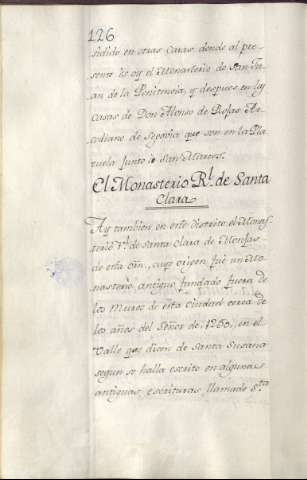 126
sidido en otras casas donde al pre-
sente es oy el Monasterio de San Ju-
an de la Penitencia, y despues en las
casas de Don Alonso de Rojas Ar-
cediano de Segovia que son en la Pla-
zuela junto a San Marcos.
El Monasterio Rl. de Santa
Clara.
Ay tambien en este distrito el Monas-
terio Rl. de Santa Clara de Monjas
de esta Orn., cuyo origen fue un Mo-
nasterio antiguo fundado fuera de
los Muros de esta ciudad cerca de
los años del Señor de 1250, en el
Valle que dicen de Santa Susana
segun se halla escrito en algunas
antiguas escrituras, llamado Sta.